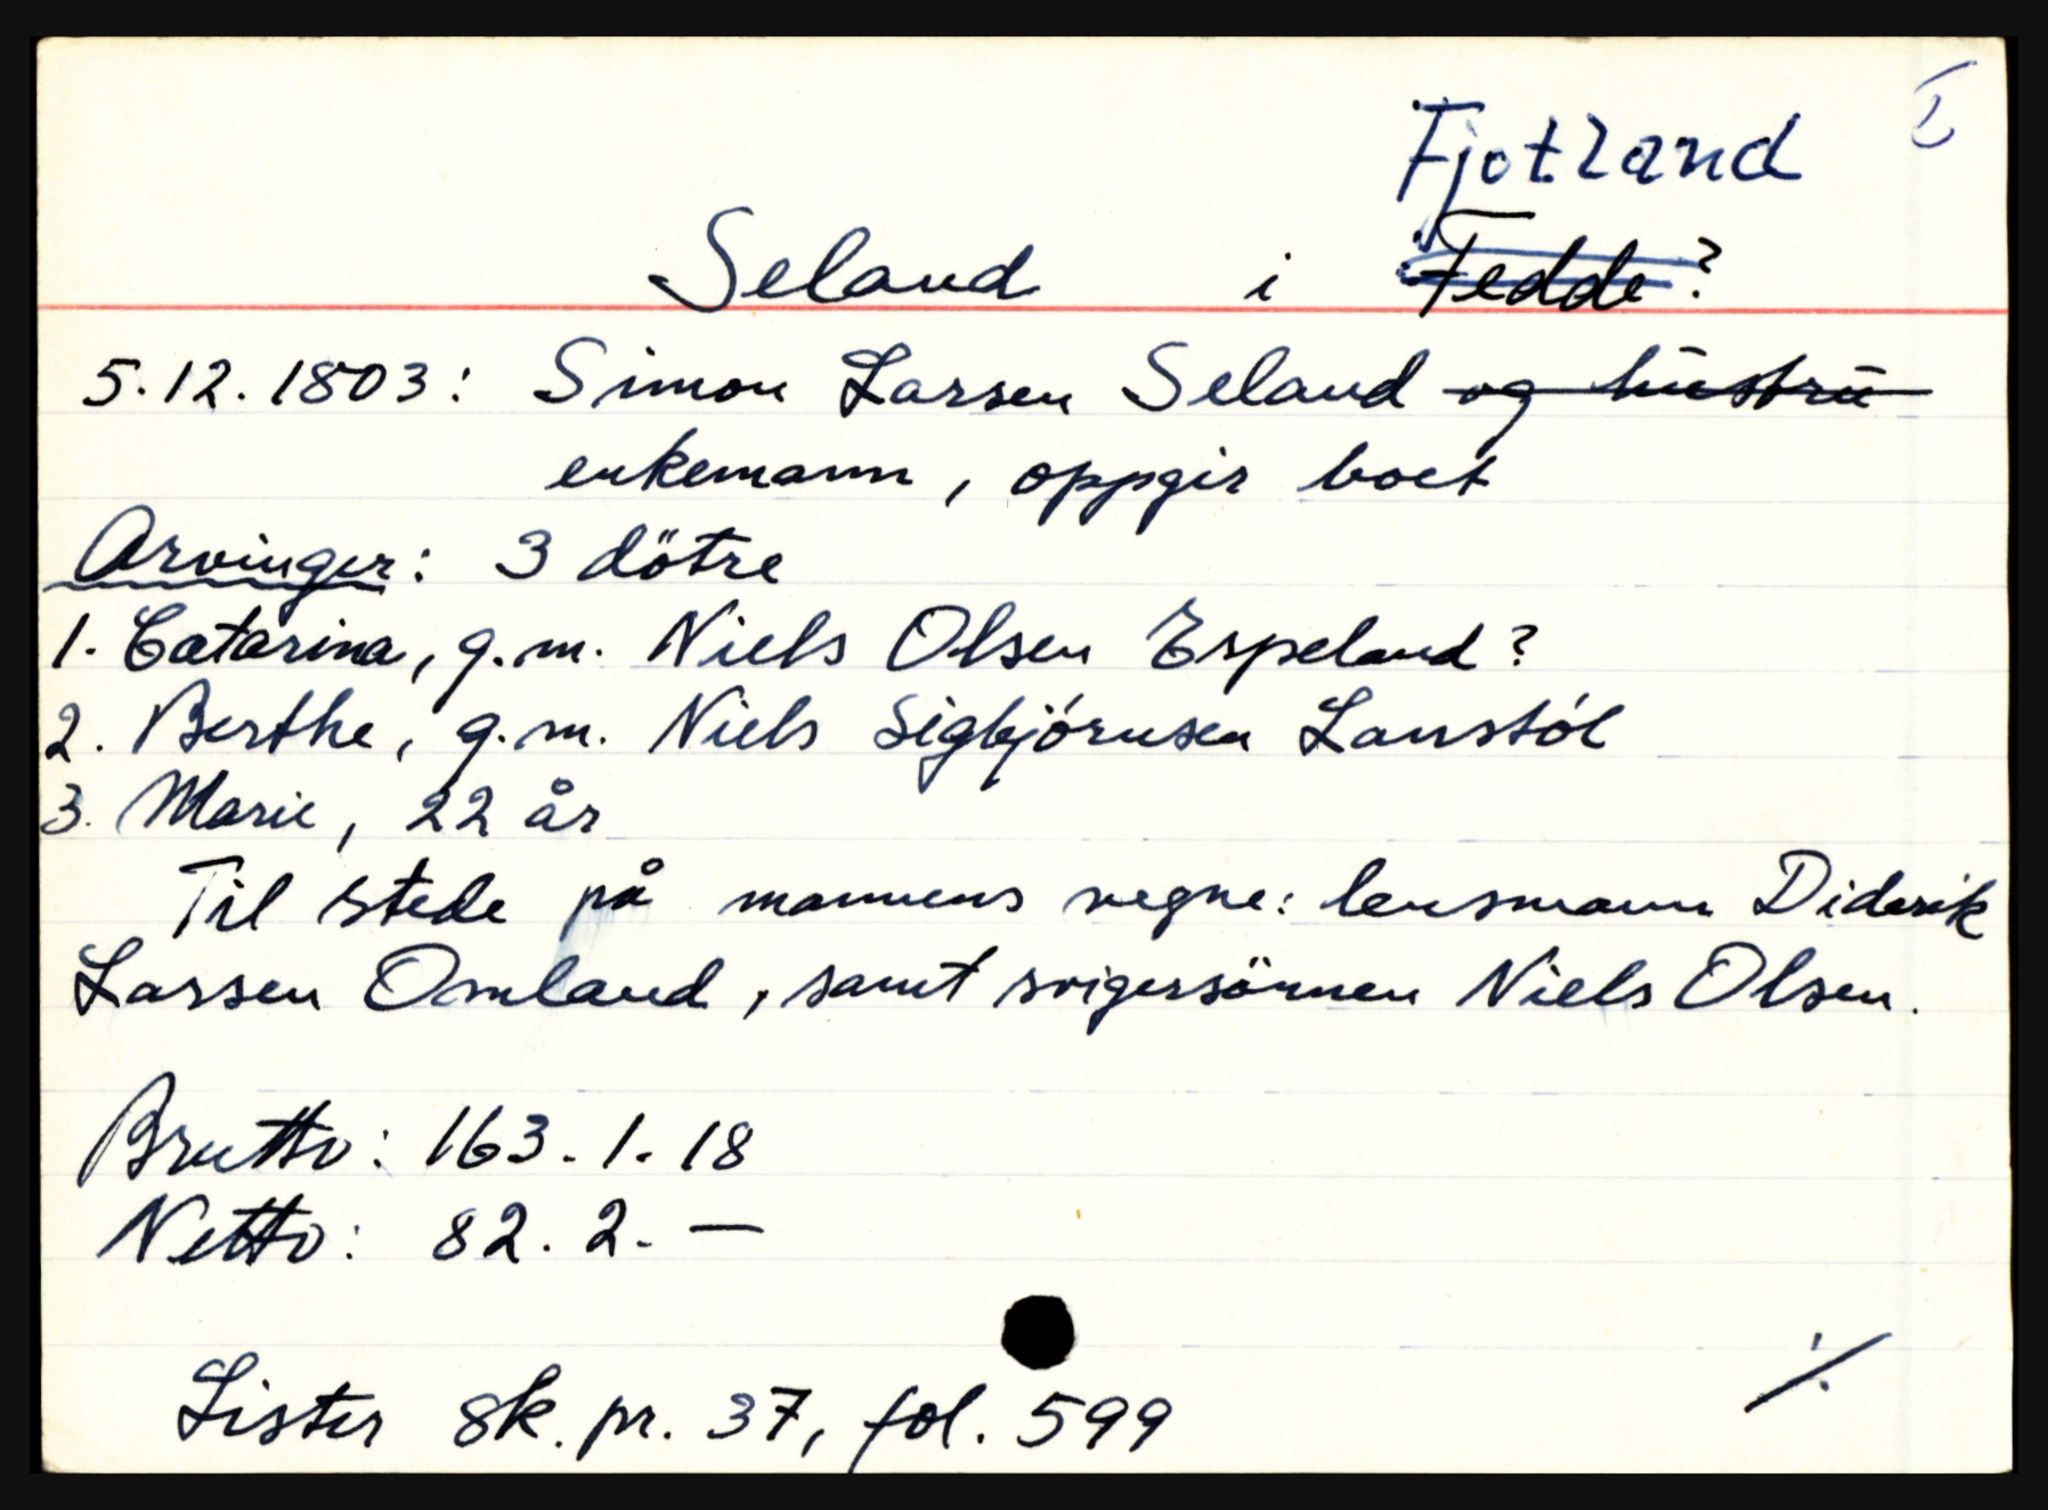 I
Fjotland
Seland i Fedde?
5.12.1803: Simon Larsen Seland og hūstrū
enkemann, oppgir boet
Arvinger: 3 dötre
1. Catarina, g.m. Niels Olsen Espeland?
2. Berthe, g.m. Niels Sigbjórnsen Lanstól
3. Marie, 22 år
Til stede på mannens vegne: lensmann Diderik
Larsen Omland, samt svigersönnen Niels Olsen.
Brutto: 163.1.18
Netto: 82.2.—
Lister sk. pr. 37, fol. 599